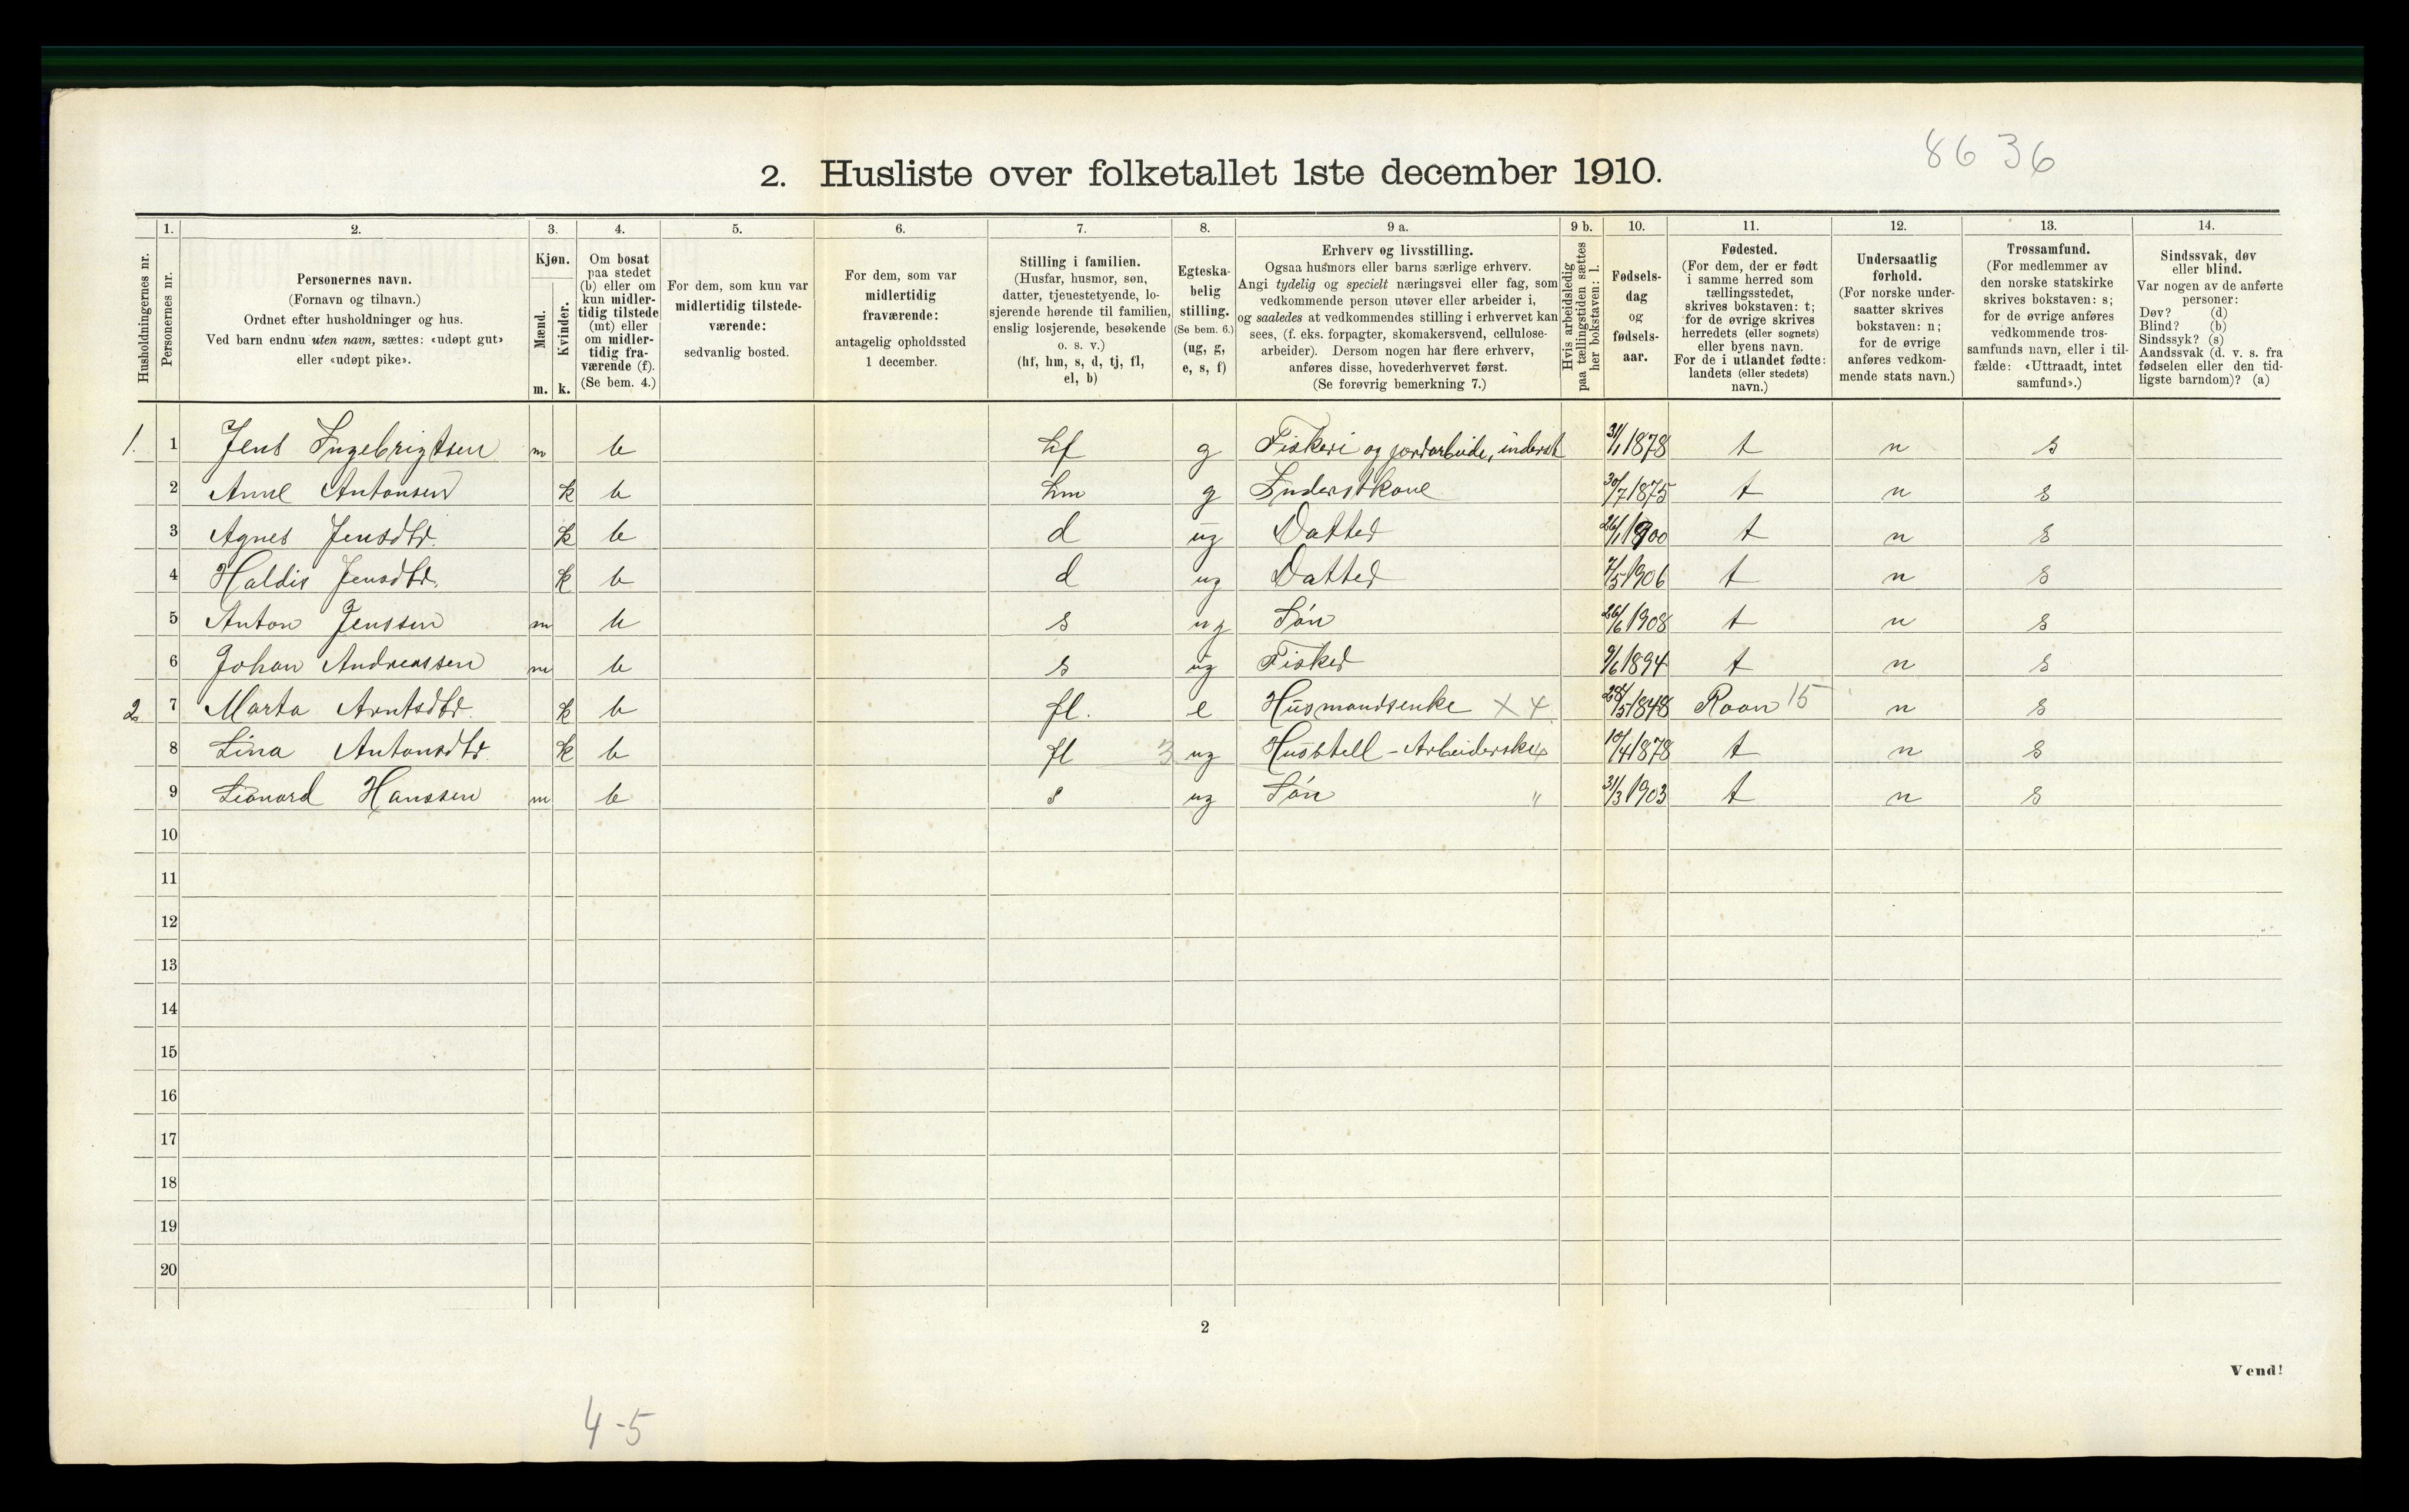 8636
2. Husliste over folketallet 1ste december 1910.
Husholdningernes nr.
1. Personernes nr.
2. Personernes navn.
(Fornavn og tilnavn.)
Ordnet efter husholdninger og hus.
Ved barn endnu uten navn, sættes: «udøpt gut»
eller «udøpt pike».
3. Kjøn.
Mænd. m.
Kvinder. k.
4. Om bosat
paa stedet
(b) eller om
kun midler-
tidig tilstede
(mt) eller
om midler-
tidig fra-
værende (f).
(Se bem. 4.)
5. For dem, som kun var
midlertidig tilstede-
værende:
sedvanlig bosted.
6. For dem, som var
midlertidig
fraværende:
antagelig opholdssted
1 december.
7. Stilling i familien.
(Husfar, husmor, søn,
datter, tjenestetyende, lo-
sjerende hørende til familien,
enslig losjerende, besøkende
o. s. v.)
(hf, hm, s, d, tj, fl,
el, b)
8. Egteska-
belig
stilling.
(Se bem. 6.)
(ug, g,
e, s, f)
9 a. Erhverv og livsstilling.
Ogsaa husmors eller barns særlige erhverv.
Angi tydelig og specielt næringsvei eller fag, som
vedkommende person utøver eller arbeider i,
og saaledes at vedkommendes stilling i erhvervet kan
sees, (f. eks. forpagter, skomakersvend, cellulose-
arbeider). Dersom nogen har flere erhverv,
anføres disse, hovederhvervet først.
(Se forøvrig bemerkning 7.)
9 b. Hvis arbeidsledig
paa tællingstiden sættes
her bokstaven: l.
10. Fødsels-
dag
og
fødsels-
aar.
11. Fødested.
(For dem, der er født
i samme herred som
tællingsstedet,
skrives bokstaven: t;
for de øvrige skrives
herredets (eller sognets)
eller byens navn.
For de i utlandet fødte:
landets (eller stedets)
navn.)
12. Undersaatlig
forhold.
(For norske under-
saatter skrives
bokstaven: n;
for de øvrige
anføres vedkom-
mende stats navn.)
13. Trossamfund.
(For medlemmer av
den norske statskirke
skrives bokstaven: s;
for de øvrige anføres
vedkommende tros-
samfunds navn, eller i til-
fælde: «Uttraadt, intet
samfund».)
14. Sindssvak, døv
eller blind.
Var nogen av de anførte
personer:
Døv? (d)
Blind? (b)
Sindssyk? (s)
Aandssvak (d. v. s. fra
fødselen eller den tid-
ligste barndom)? (a)
1. 1 Jens Ingebrigtsen m b hf g Fiskeri og jordarbeide, inderst 31/1 1878 t n s
2 Anne Antonsen k b hm g Inderstkone 30/7 1875 t n s
3 Agnes Jensdtr. k b d ug Datter 26/1 1900 t n s
4 Haldis Jensdtr. k b d ug Datter 7/5 1906 t n s
5 Anton Jenssen m b s ug Søn 26/6 1908 t n s
6 Johan Andreassen m b s ug Fisker 9/6 1894 t n s
2. 7 Marta Arntsdtr. k b fl. e Husmandsenke X 4. 28/5 1848 Roan 15 n s
8 Lina Antonsdtr. k b fl 3 ug Husstell - Arbeiderske 10/4 1878 t n s
9 Leonard Hanssen m b s ug Søn " 31/3 1903 t n s
10
11
12
13
14
15
16
17
18
19
20
2
Vend!
4-5